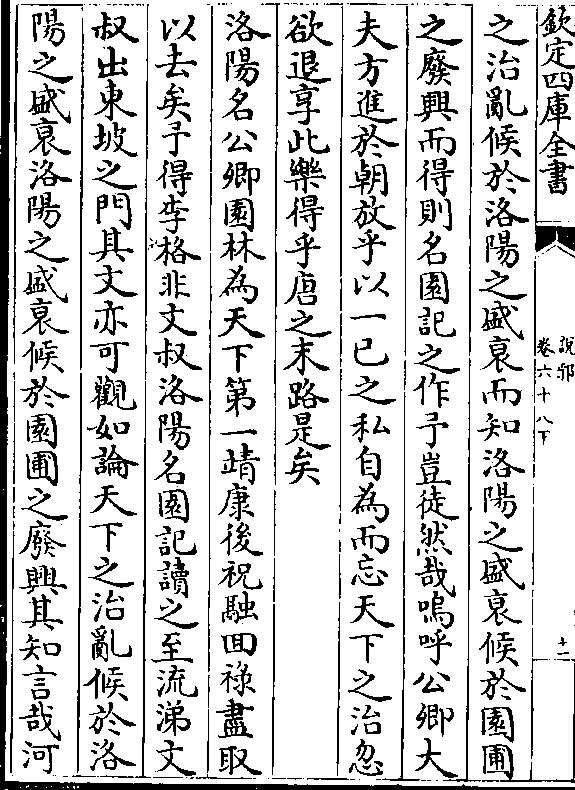 欽定四庫全書
說郛
卷六十八下
十一
之治亂候於洛陽之盛衰而知洛陽之盛衰候於園圃
之廢興而得則名園記之作予豈徒然哉嗚呼公卿大
夫方進於朝放乎以一已之私自為而忘天下之治忽
欲退享此樂得乎唐之末路是矣
洛陽名公卿園林為天下第一靖康後祝融回祿盡取
以去矣予得李格非文叔洛陽名園記讀之至流涕文
叔出東坡之門其文亦可觀如論天下之治亂候於洛
陽之盛衰洛陽之盛衰候於園圃之廢興其知言哉河